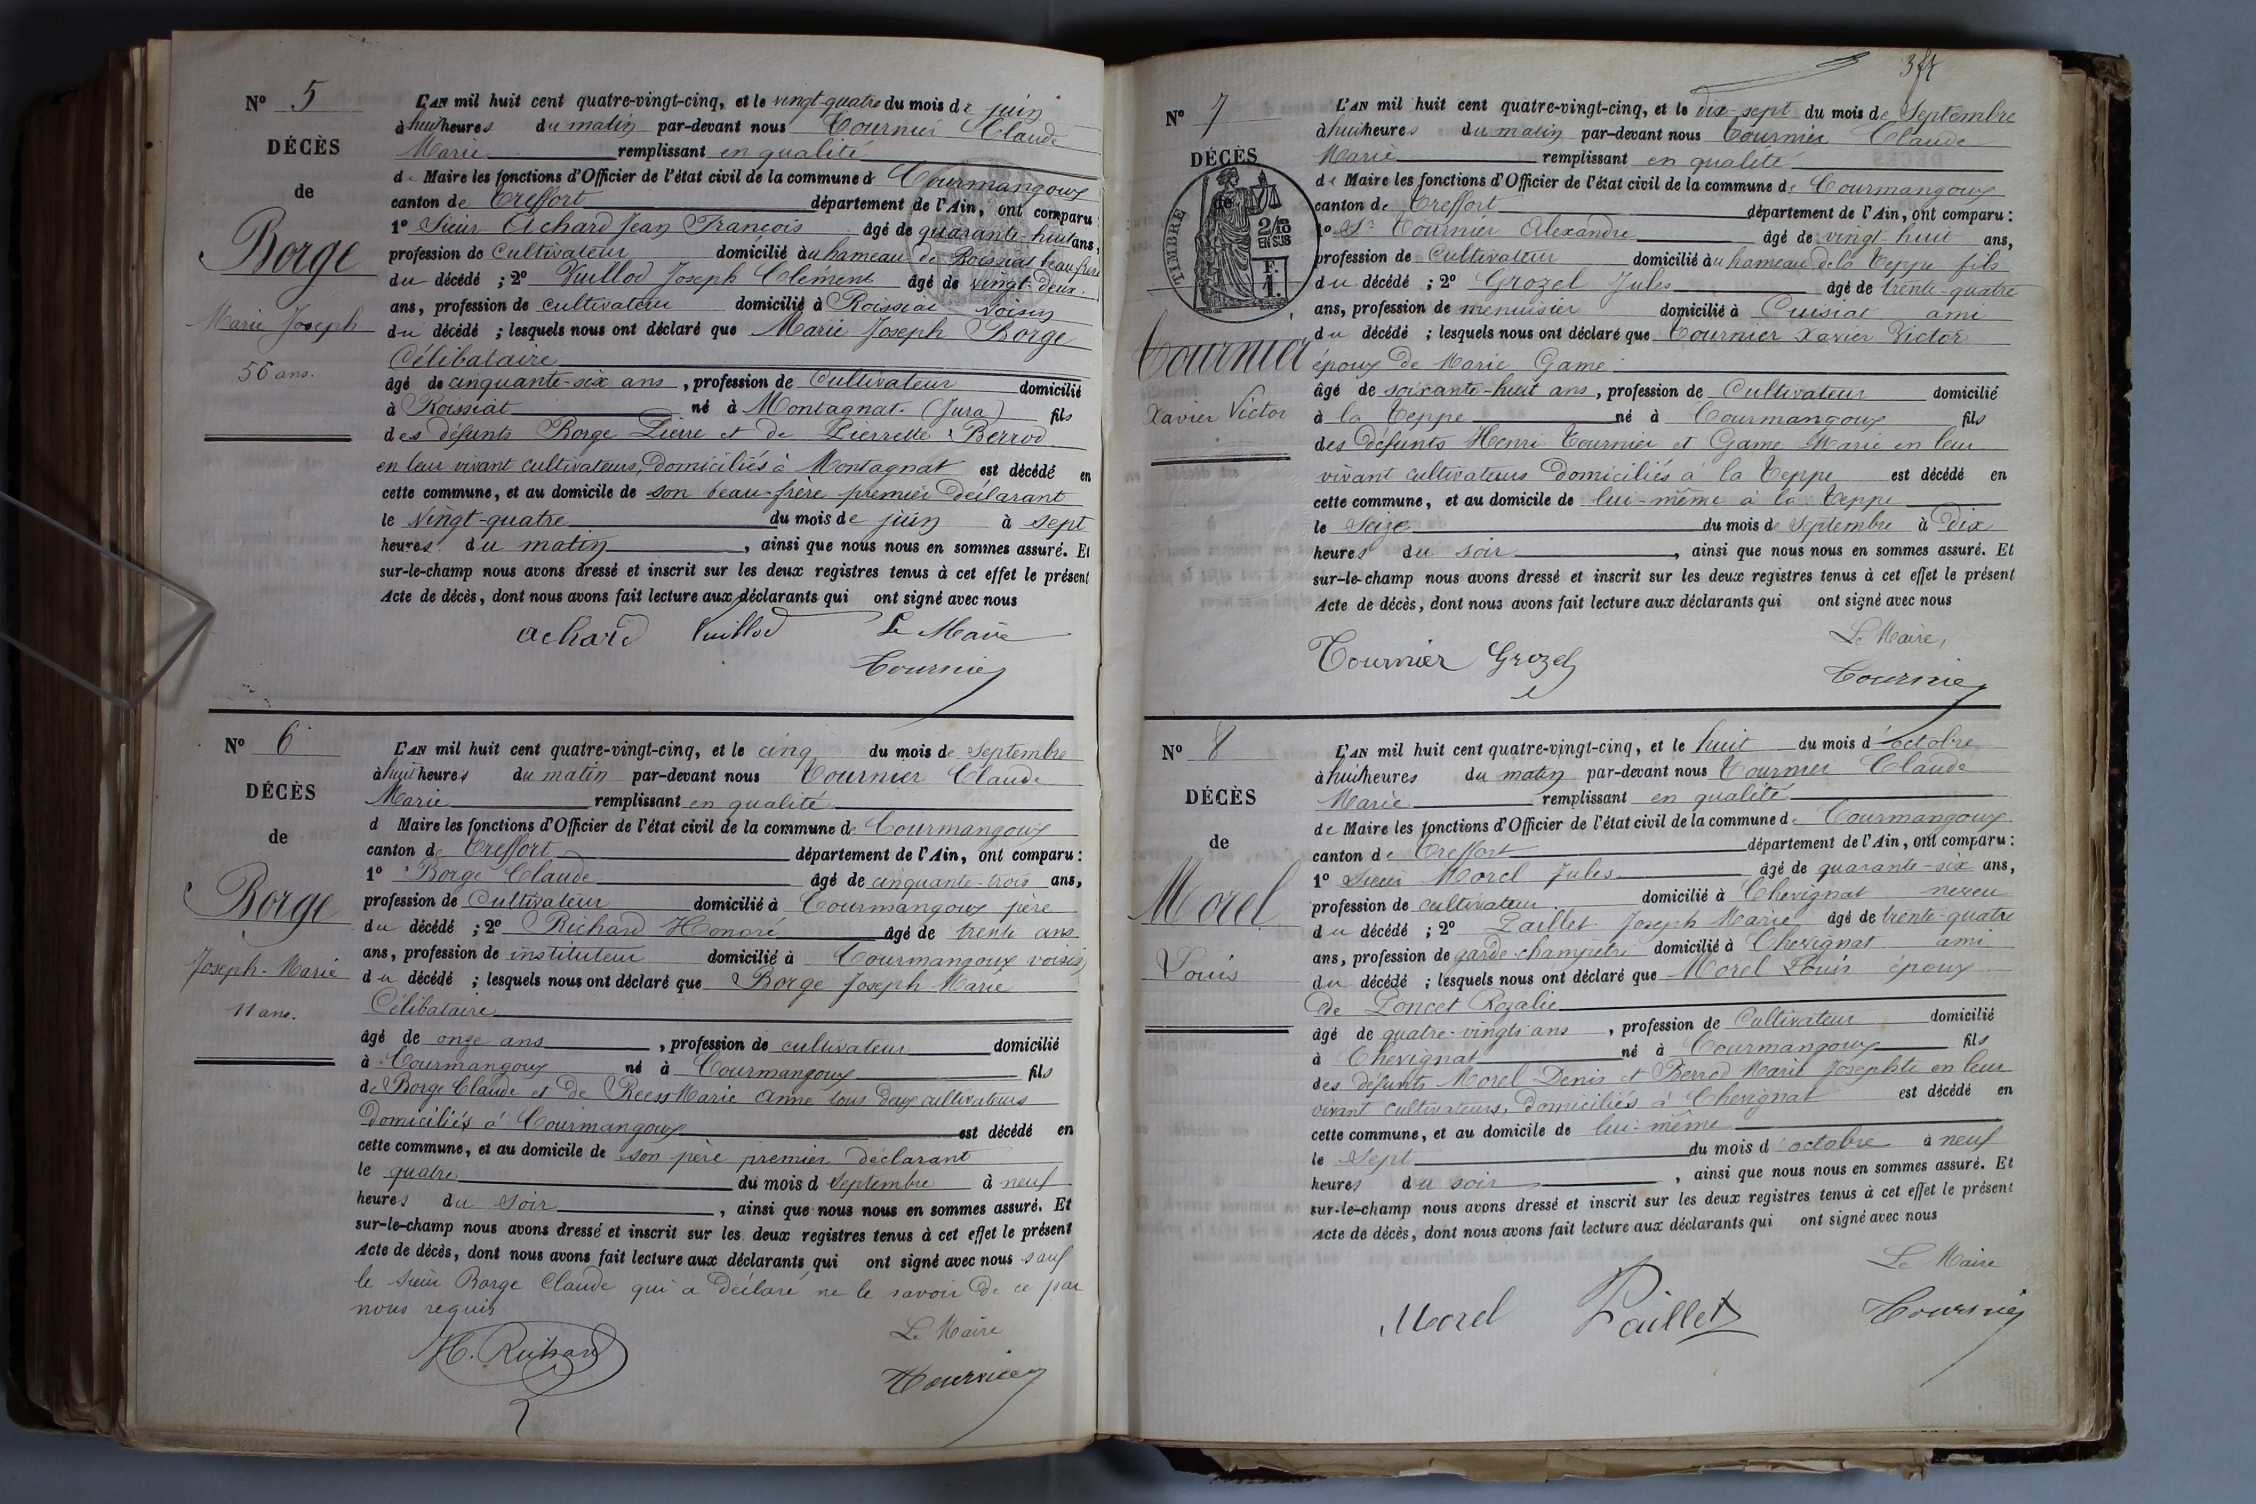 N° 5
DÉCÈS
de
Borge
Marie Joseph
56 ans.
L'AN mil huit cent quatre-vingt-cinq, et le vingt-quatre du mois de juin
à huit heures du matin par-devant nous Tournier Claude
Marie remplissant en qualité
de Maire les fonctions d'Officier de l'état civil de la commune de Courmangoux
canton de Treffort département de l'Ain, ont comparu :
1° Sieur Achard Jean François âgé de quarante-huit ans,
profession de Cultivateur domicilié au hameau de Roissiat beau frère
du décédé ; 2° Vuillod Joseph Clément âgé de vingt-deux
ans, profession de cultivateur domicilié à Roissiat voisin
du décédé ; lesquels nous ont déclaré que Marie Joseph Borge
Célibataire
âgé de cinquante-six ans, profession de Cultivateur domicilié
à Roissiat né à Montagnat (Jura) fils
des défunts Borge Pierre et de Pierrette Berrod
en leur vivant cultivateurs, domiciliés à Montagnat est décédé en
cette commune, et au domicile de son beau-frère premier déclarant
le vingt-quatre du mois de juin à sept
heures du matin, ainsi que nous nous en sommes assuré. Et
sur-le-champ nous avons dressé et inscrit sur les deux registres tenus à cet effet le présent
Acte de décès, dont nous avons fait lecture aux déclarants qui ont signé avec nous
Achard Vuillod Le Maire
Tournier
N° 6
DÉCÈS
de
Borge
Joseph-Marie
11 ans.
L'AN mil huit cent quatre-vingt-cinq, et le cinq du mois de septembre
à huit heures du matin par-devant nous Tournier Claude
Marie remplissant en qualité
d Maire les fonctions d'Officier de l'état civil de la commune de Courmangoux
canton de Treffort département de l'Ain, ont comparu :
1° Borge Claude âgé de cinquante-trois ans,
profession de Cultivateur domicilié à Courmangoux père
du décédé ; 2° Richard Honoré âgé de trente ans
ans, profession de instituteur domicilié à Courmangoux voisin
du décédé ; lesquels nous ont déclaré que Borge Joseph Marie
Célibataire
âgé de onze ans, profession de cultivateur domicilié
à Courmangoux né à Courmangoux fils
de Borge Claude et de Reess Marie Anne tous deux cultivateurs
domiciliés à Courmangoux est décédé en
cette commune, et au domicile de son père premier déclarant
le quatre du mois d septembre à neuf
heures du soir, ainsi que nous nous en sommes assuré. Et
sur-le-champ nous avons dressé et inscrit sur les deux registres tenus à cet effet le présent
Acte de décès, dont nous avons fait lecture aux déclarants qui ont signé avec nous sauf
le sieur Borge Claude qui a déclaré ne le savoir de ce par
nous requis
Le Maire
H. Richard Tournier
N° 7
DÉCÈS
de
TIMBRE
2/10
EN SUS
F.
1
Tournier
Xavier Victor
L'AN mil huit cent quatre-vingt-cinq, et le dix-sept du mois de Septembre
à huit heures du matin par-devant nous Tournier Claude
Marie remplissant en qualité
de Maire les fonctions d'Officier de l'état civil de la commune de Courmangoux
canton de Treffort département de l'Ain, ont comparu :
1° Sr Tournier Alexandre âgé de vingt-huit ans,
profession de Cultivateur domicilié au hameau de la Teppe fils
du décédé ; 2° Grozel Jules âgé de trente-quatre
ans, profession de menuisier domicilié à Cuisiat ami
du décédé ; lesquels nous ont déclaré que Tournier Xavier Victor
époux de Marie Game
âgé de soixante-huit ans, profession de Cultivateur domicilié
à la Teppe né à Courmangoux fils
des défunts Henri Tournier et Game Marie en leur
vivant cultivateurs domiciliés à la Teppe est décédé en
cette commune, et au domicile de lui-même à la Teppe
le Seize du mois de Septembre à dix
heures du soir, ainsi que nous nous en sommes assuré. Et
sur-le-champ nous avons dressé et inscrit sur les deux registres tenus à cet effet le présent
Acte de décès, dont nous avons fait lecture aux déclarants qui ont signé avec nous
Le Maire,
Tournier Grozel Tournier
N° 8
DÉCÈS
de
Morel
Louis
L'AN mil huit cent quatre-vingt-cinq, et le huit du mois d'octobre
à huit heures du matin par-devant nous Tournier Claude
Marie remplissant en qualité
de Maire les fonctions d'Officier de l'état civil de la commune de Courmangoux
canton de Treffort département de l'Ain, ont comparu :
1° Sieur Morel Jules âgé de quarante-six ans,
profession de cultivateur domicilié à Chevignat neveu
du décédé ; 2° Paillet Joseph Marie âgé de trente-quatre
ans, profession de garde-champêtre domicilié à Chevignat ami
du décédé ; lesquels nous ont déclaré que Morel Louis époux
de Poncet Rozalie
âgé de quatre-vingts ans, profession de Cultivateur domicilié
à Chevignat né à Courmangoux fils
des défunts Morel Denis et Berrod Marie Josephte en leur
vivant cultivateurs, domiciliés à Chevignat est décédé en
cette commune, et au domicile de lui-même
le sept du mois d'octobre à neuf
heures du soir, ainsi que nous nous en sommes assuré. Et
sur-le-champ nous avons dressé et inscrit sur les deux registres tenus à cet effet le présent
Acte de décès, dont nous avons fait lecture aux déclarants qui ont signé avec nous
Le Maire
Morel Paillet Tournier